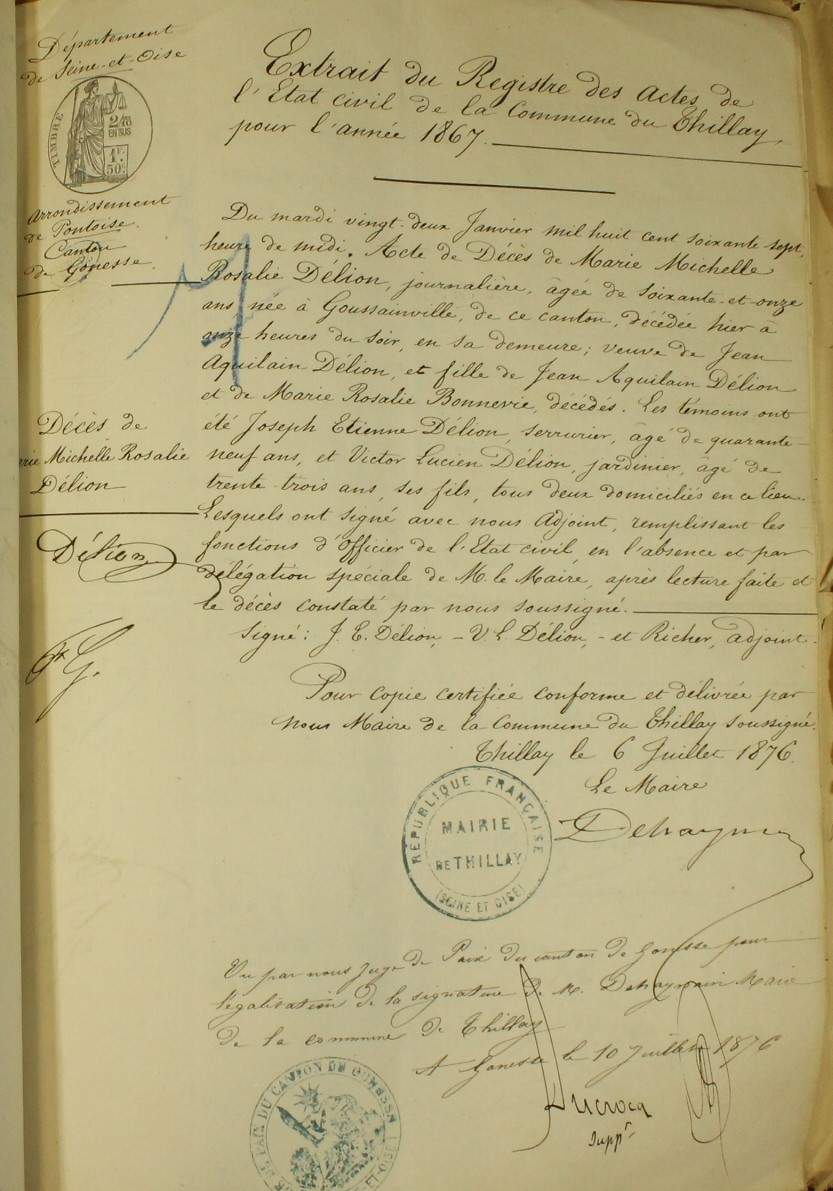 Département
de Seine-et-Oise
TIMBRE
2/10
EN SUS
1F.
50C.
Arrondissement
de Pontoise.
Canton
de Gonesse.
Extrait du Registre des Actes de
l'Etat civil de la Commune du Thillay,
pour l'année 1867.
Du mardi vingt-deux Janvier mil huit cent soixante sept,
heure de midi. Acte de Décès de Marie Michelle
Rosalie Délion, journalière, âgée de soixante-et-onze
ans, née à Goussainville, de ce canton, décédée hier à
onze heures du soir, en sa demeure; veuve de Jean
Aquilain Délion, et fille de Jean Aquilain Délion
et de Marie Rosalie Bonnevie, décédés. Les témoins ont
été Joseph Etienne Délion, serrurier, âgé de quarante-
neuf ans, et Victor Lucien Délion, jardinier, âgé de
trente-trois ans, ses fils, tous deux domiciliés en ce lieu.
Lesquels ont signé avec nous Adjoint, remplissant les
fonctions d'officier de l'Etat civil, en l'absence et par
délégation spéciale de M. le Maire, après lecture faite et
le décès constaté par nous soussigné.
Signé: J. E. Délion, - V. L. Délion, - et Richer, adjoint.
Décès de
rie Michelle Rosalie
Délion
Délion
G.
Pour copie certifiée conforme et délivrée par
nous Maire de la Commune du Thillay soussigné.
Thillay le 6 Juillet 1876.
Le Maire
RÉPUBLIQUE FRANÇAISE
MAIRIE
DE THILLAY
(SEINE ET OISE)
Vu par nous Juge de Paix du canton de Gonesse pour
légalisation de la signature de M. Dehaynain Maire
de la commune de Thillay
A Gonesse le 10 Juillet 1876
Ducrocq
suppt
DE PAIX DU CANTON DE GONESSE